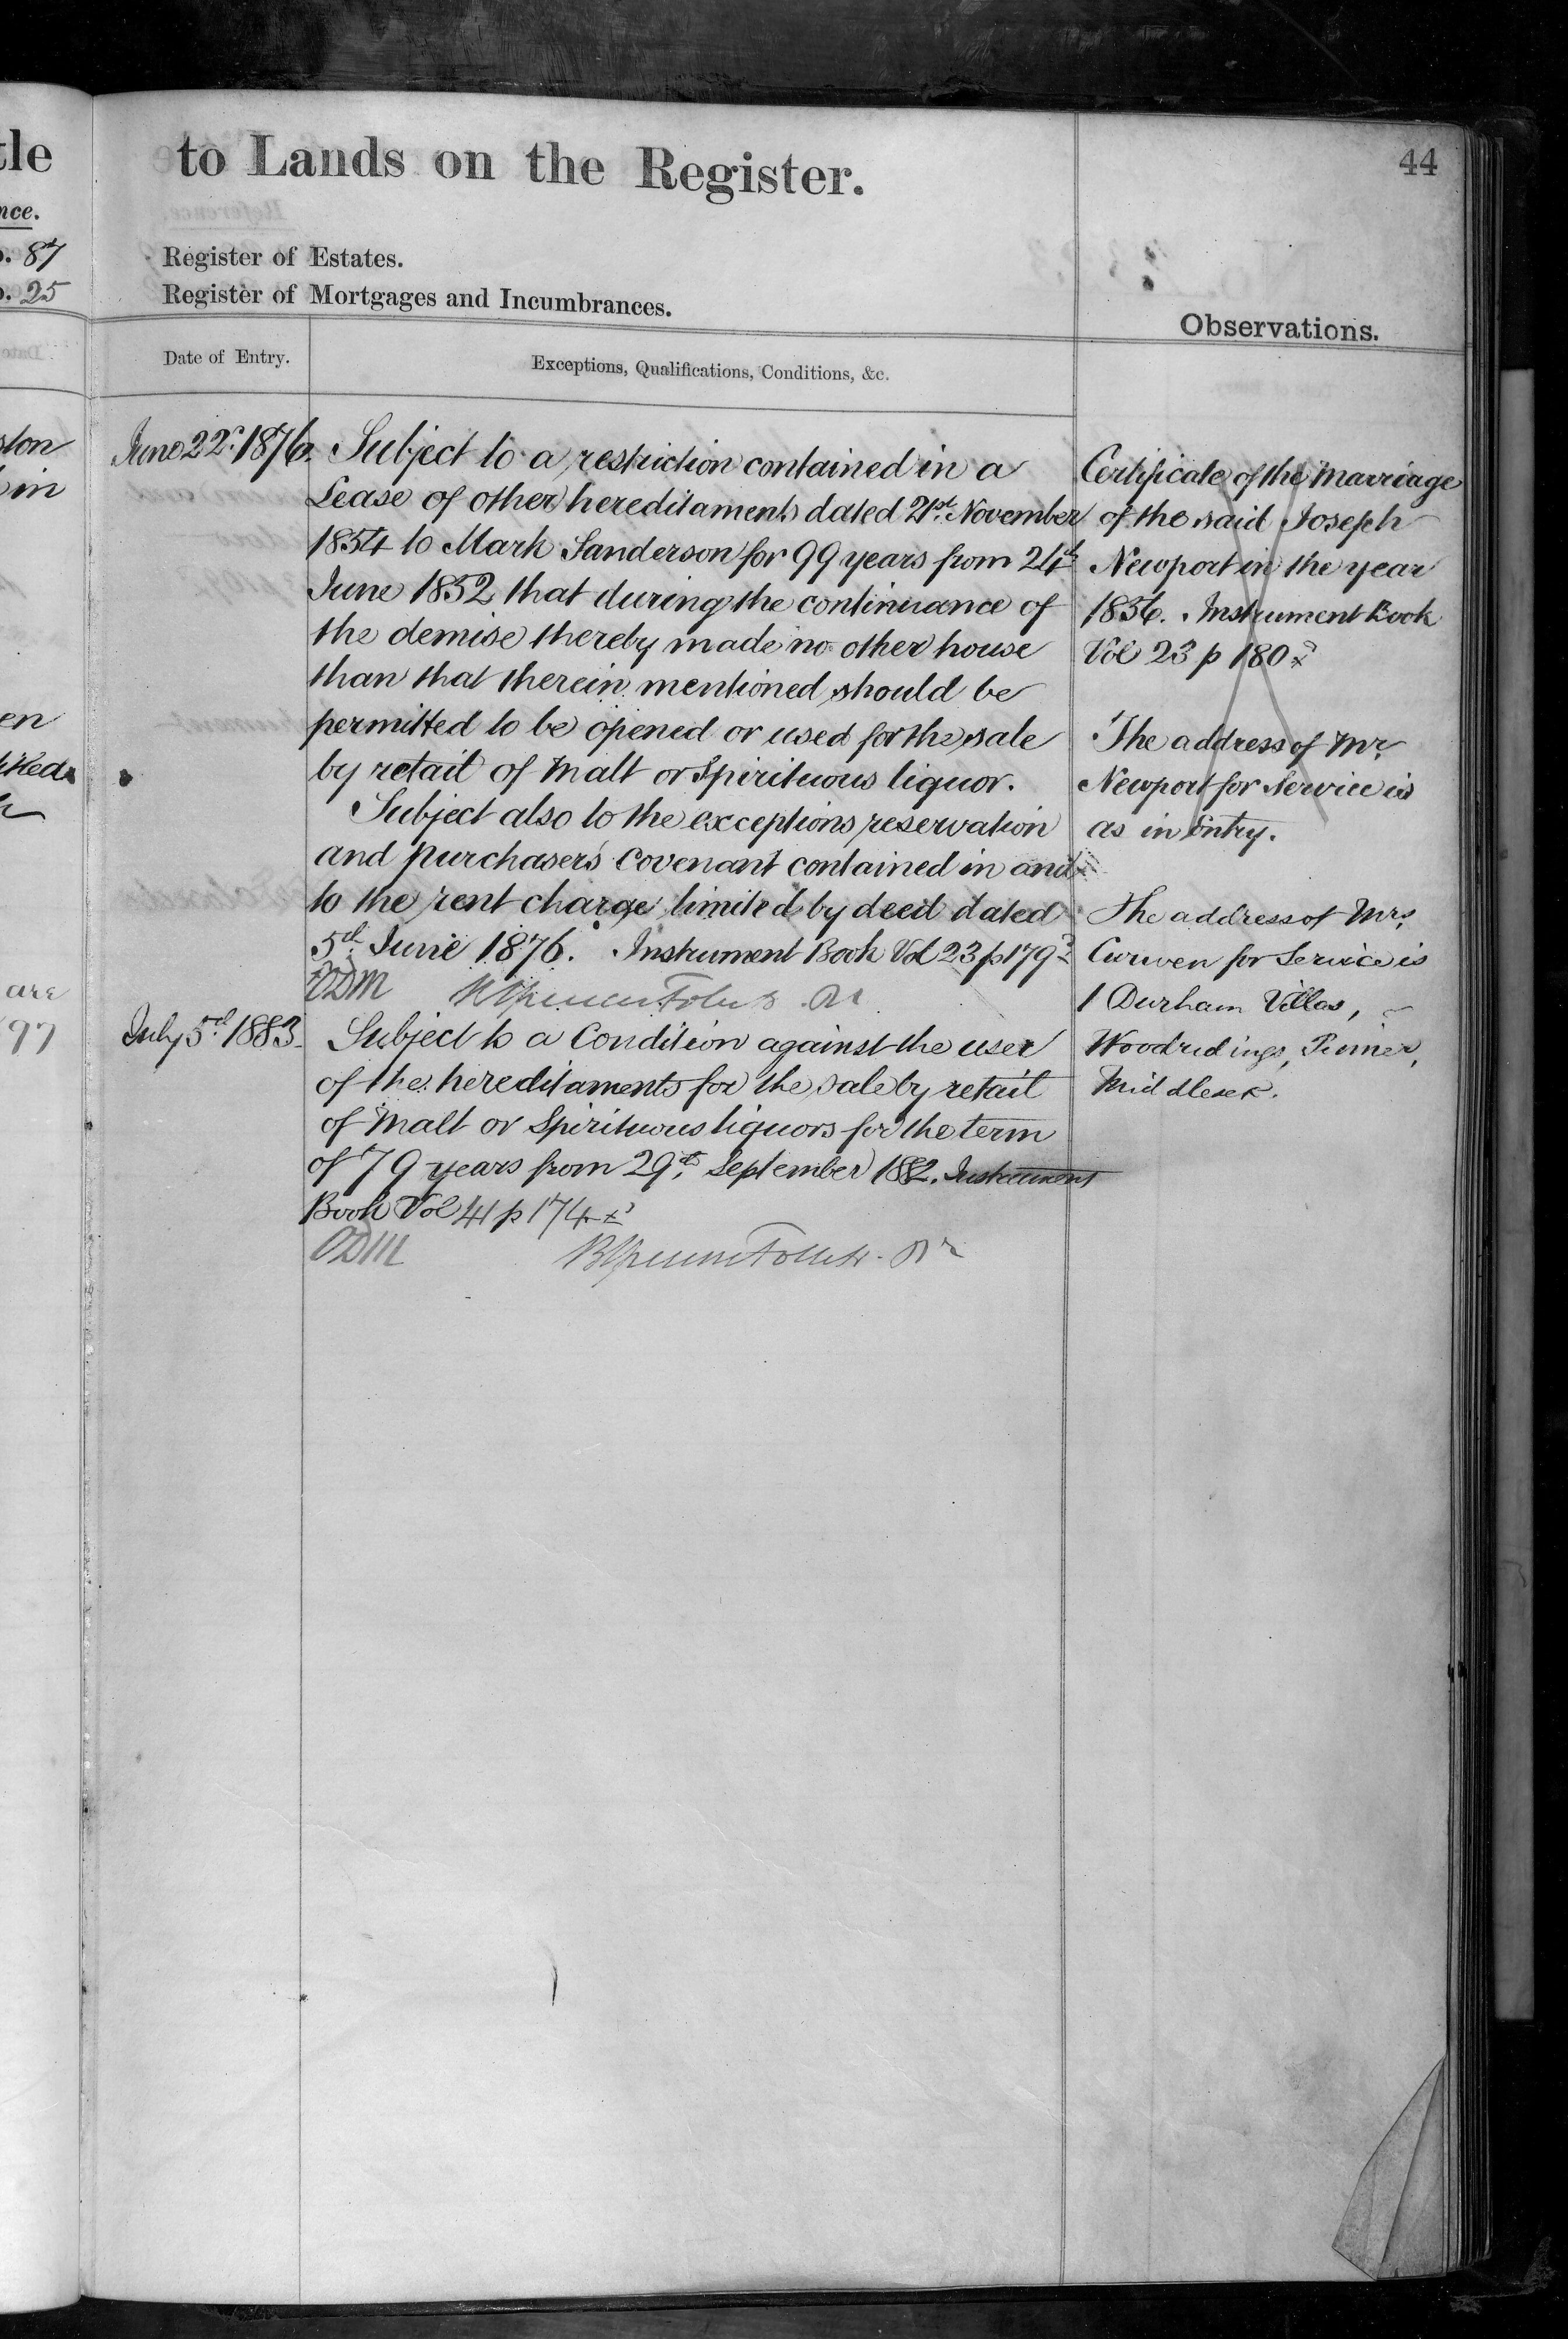 tle
nce.
o. 87
o. 25
ston
in
en
are
97
to Lands on the Register.
44
Register of Estates.
Register of Mortgages and Incumbrances.
Observations.
Date of Entry.
Exceptions, Qualifications, Conditions, &c.
June 22d. 1876. Subject to a restriction contained in a
Lease of other hereditaments dated 21st. November
1854 to Mark Sanderson for 99 years from 24th
June 1852 that during the continuance of
the demise thereby made no other house
than that therein mentioned should be
permitted to be opened or used for the sale
by retail of Malt or Spirituous liquor.
Subject also to the exceptions reservation
and purchasers covenant contained in and
to the rent charge limited by deed dated
5th. June 1876. Instrument Book Vol 23 p 179
ODM
July 5th. 1883. Subject to a Condition against the user
of the hereditaments for the sale by retail
of Malt or Spirituous liquors for the term
of 79 years from 29th. September 1882. Instrument
Book Vol 41 p 174
ODM
Certificate of the Marriage
of the said Joseph
Newport in the year
1856. Instrument Book
Vol 23 p 180
The address of Mr.
Newport for Service is
as in Entry.
The address of Mrs.
Curwen for Service is
1 Durham Villas,
Woodridings, Pinner,
Middlesex.